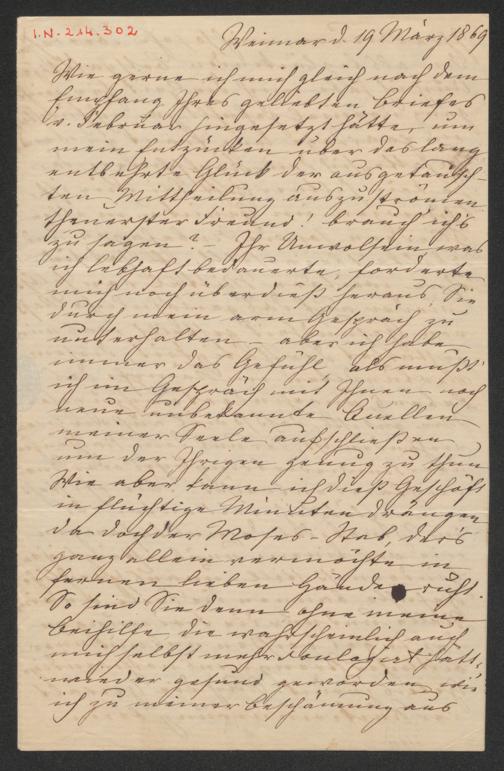 I.N. 214.302
Weimar d. 19 März 1869
Wie gerne ich mich gleich nach dem
Empfang Ihres geliebten Briefes
v. Februar hingesetzt hätte, um
mein Entzücken über das lang
entbehrte Glück der ausgetausch-
ten Mittheilung auszuströmen
theuerster Freund! brauch ich's
zu sagen? – Ihr Unwolsein, was
ich lebhaft bedauerte, forderte
mich noch überdieß heraus, Sie
durch mein arm Gespräch zu
unterhalten – aber ich habe
immer das Gefühl, als müßt'
ich im Gespräch mit Ihnen noch
neue unbekannte Quellen
meiner Seele aufschließen
um der Ihrigen genug zu thun
Wie aber kann ich dieß Geschäft
in flüchtige Minuten drängen
da doch der Moses-Stab, der's
ganz allein vermöchte in
fernen lieben Händen ruht.
So sind Sie denn ohne meine
Beihilfe, die wahrscheinlich auch
mich selbst mehr hätt',
wieder gesund geworden, wie
ich zu meiner Beschämung aus